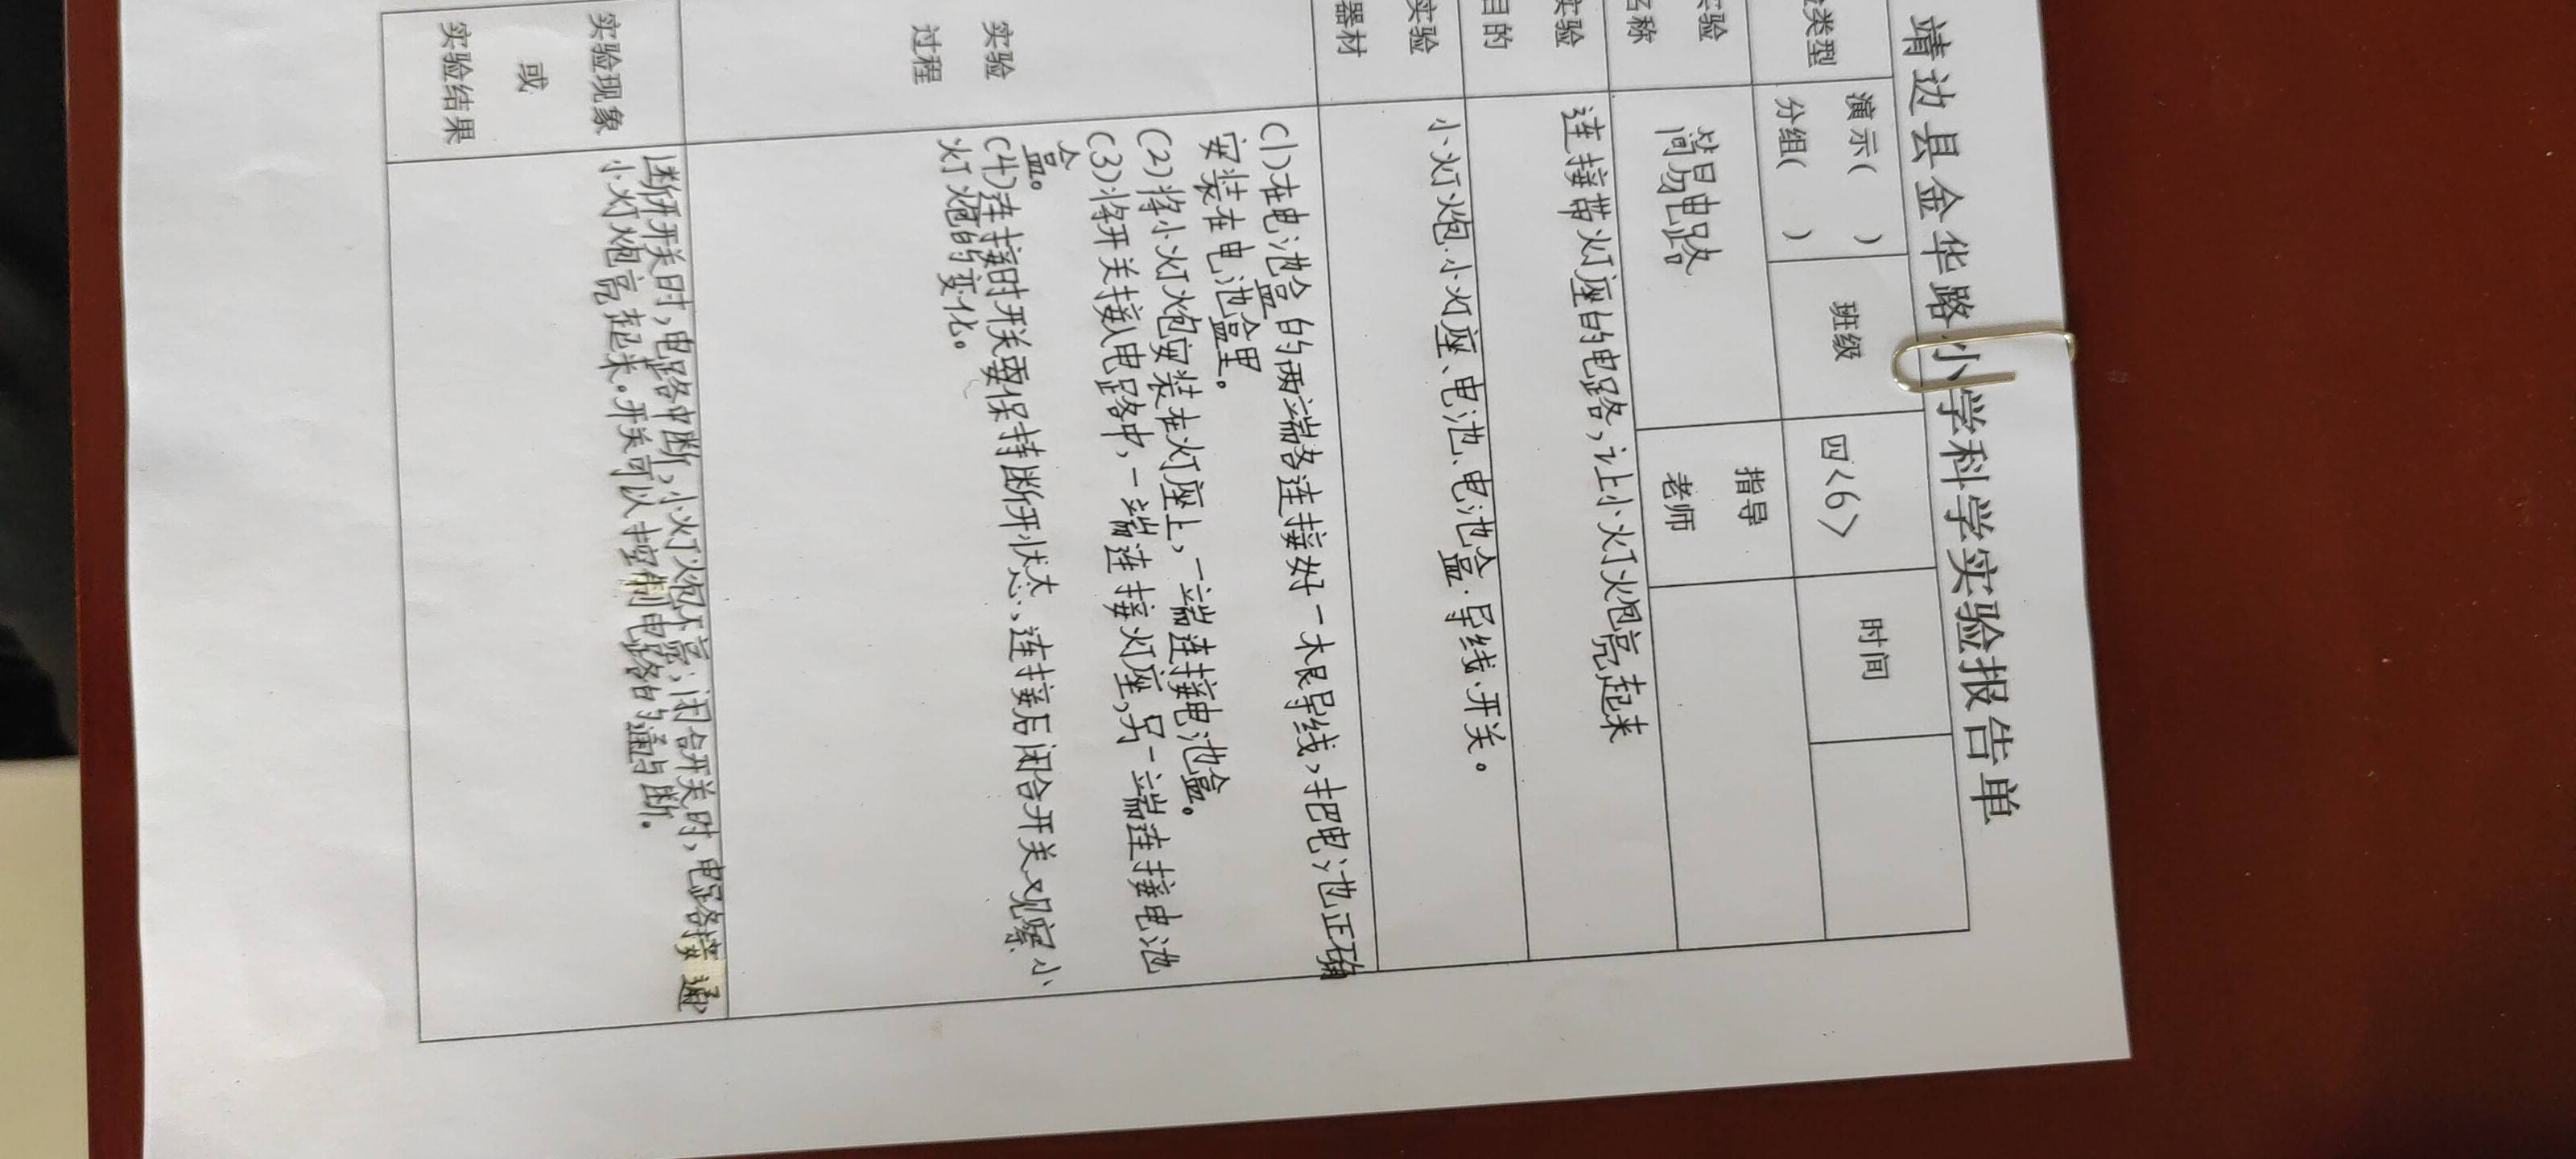 靖边县金华路小学科学实验报告单
类型 演示( ) 分组( ) 班级 四<6> 时间
实验名称 简易电路 指导老师
实验目的 连接带灯座的电路，让小灯炮亮起来
实验器材 小灯炮、小灯座、电池、电池盒、导线、开关。
实验过程
(1)在电池盒的两端各连接好一根导线，把电池正确
安装在电池盒里。
(2)将小灯炮安装在灯座上，一端连接电池盒。
(3)将开关接入电路中，一端连接灯座，另一端连接电池
盒。
(4)连接时开关要保持断开状态，连接后闭合开关观察小
灯炮的变化。
实验现象
或
实验结果
断开开关时，电路中断，小灯炮不亮；闭合开关时，电路接通，
小灯炮亮起来。开关可以控制电路的通与断。